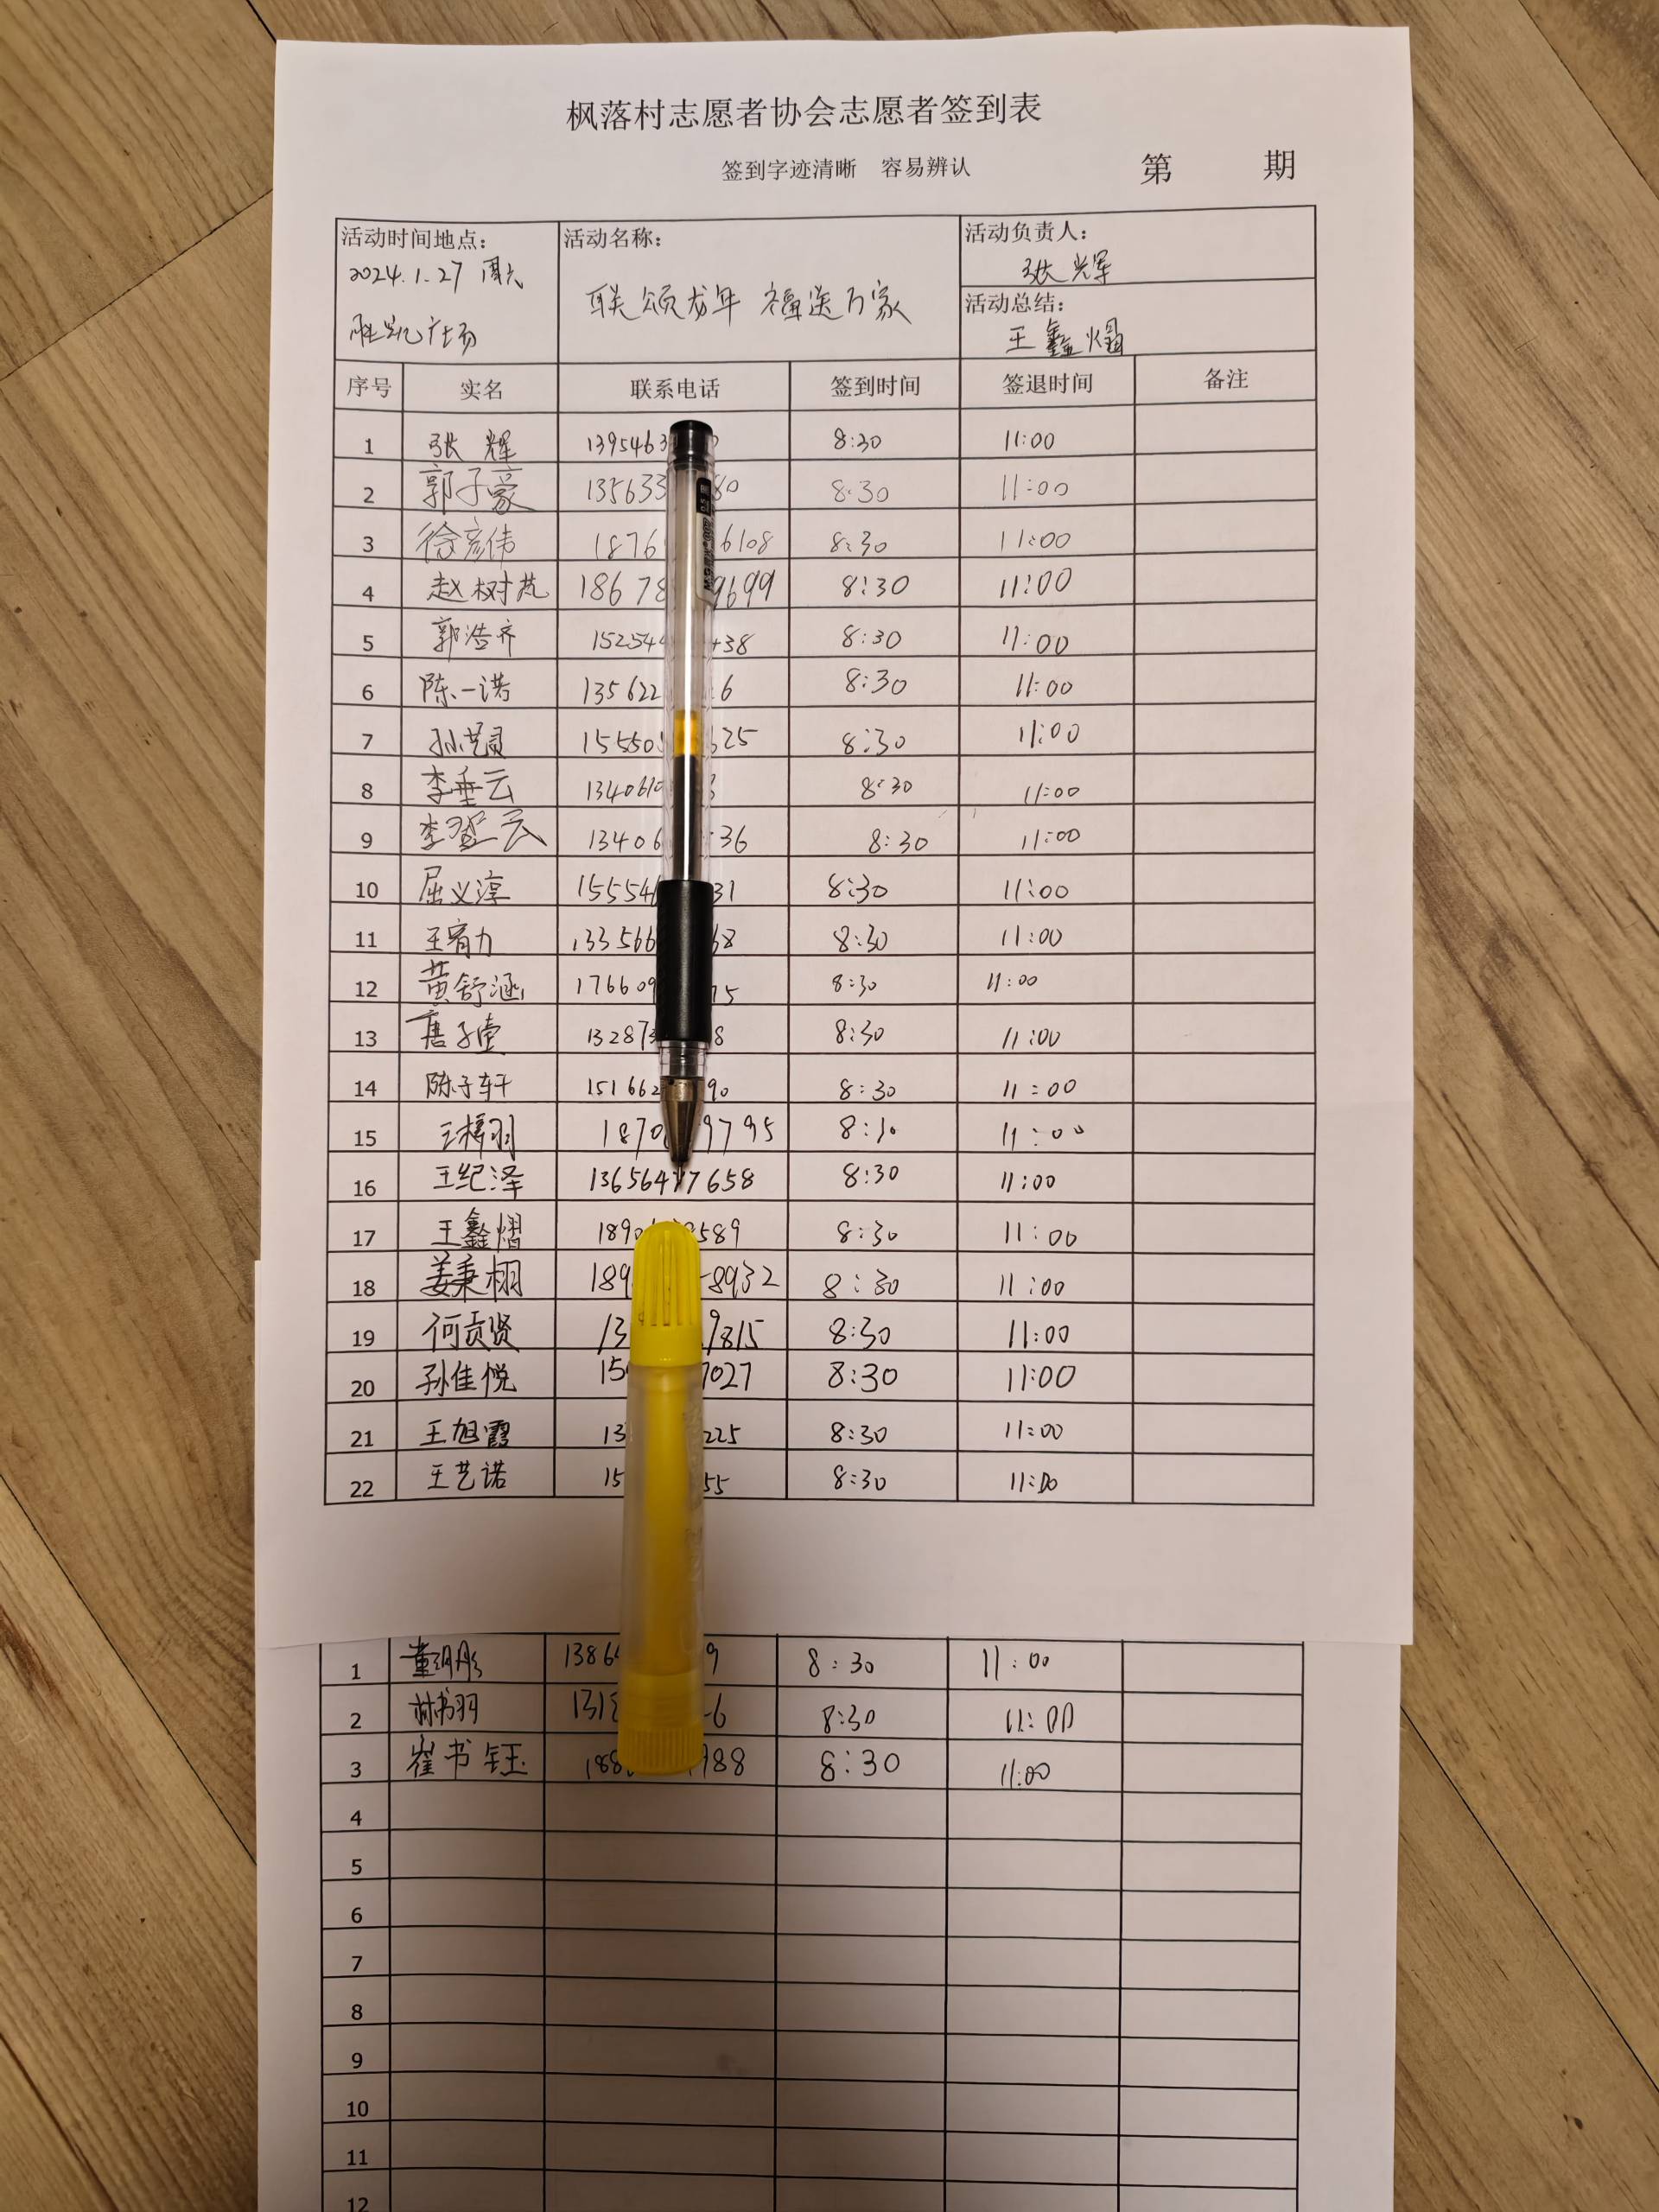 枫落村志愿者协会志愿者签到表
签到字迹清晰 容易辨认 第 期
活动时间地点: 活动名称: 活动负责人:
2024.1.27 周六 张辉
联颂龙年 福送万家 活动总结:
胜凯广场 王鑫熠
序号 实名 联系电话 签到时间 签退时间 备注
1 张辉 1395463 8:30 11:00
2 郭子豪 135633 80 8:30 11:00
3 徐彦伟 1876 6108 8:30 11:00
4 赵树芃 18678 9699 8:30 11:00
5 郭浩齐 15254 38 8:30 11:00
6 陈一诺 135622 6 8:30 11:00
7 孙艺 15550 325 8:30 11:00
8 李垂云 134061 3 8:30 11:00
9 李登云 13406 36 8:30 11:00
10 屈义淳 155546 31 8:30 11:00
11 王宥力 133566 68 8:30 11:00
12 黄舒涵 176609 75 8:30 11:00
13 唐子壹 13287 8 8:30 11:00
14 陈子轩 151662 90 8:30 11:00
15 王梓羽 1870 9795 8:30 11:00
16 王纪泽 136564 7658 8:30 11:00
17 王鑫熠 189 589 8:30 11:00
18 姜秉栩 189 8932 8:30 11:00
19 何贡贤 13 9815 8:30 11:00
20 孙佳悦 15 7027 8:30 11:00
21 王旭霞 13 225 8:30 11:00
22 王艺诺 15 55 8:30 11:00
1 董玥彤 1386 9 8:30 11:00
2 林书羽 131 6 8:30 11:00
3 崔书钰 188 988 8:30 11:00
4
5
6
7
8
9
10
11
12